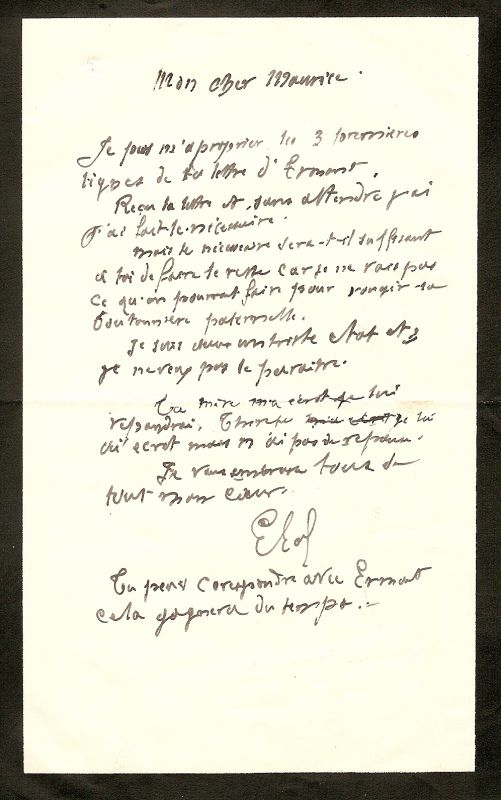 Mon cher Maurice.
Je puis m'aproprier les 3 premieres
lignes de ta lettre d'Ermont,
Recu ta lettre et, sans attendre j'ai
j'ai fait le nécessaire.
mais le nécessaire sera-t-il suffisant
a toi de faire le reste car je ne vois pas
ce qu'on pourrait faire pour rougir ta
boutonnière paternelle.
Je suis dans un triste etat et
je ne veux pas le paraitre.
Ta mère m'a ecrit je lui
respondrai. Therese je lui
ai ecrit mais n'ai pas de reponse.
Je vous embrasse tous de
tout mon cœur.
Tu peux corespondre avec Ermont
cela gagnera du temps.